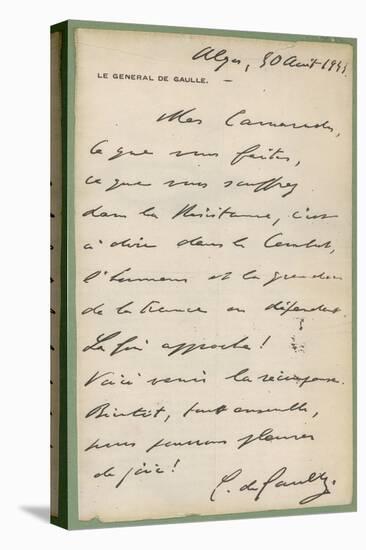 Alger, 30 Août 1943.
LE GENERAL DE GAULLE. –
Mes Camarades,
Ce que vous faites,
ce que vous souffrez
dans la Résistance, c'est
à dire dans le Combat,
l'honneur et la grandeur
de la France en dépendent.
La fin approche!
Voici venir la récompense.
Bientôt, tous ensemble,
nous pourrons pleurer
de joie!
C. de Gaulle.